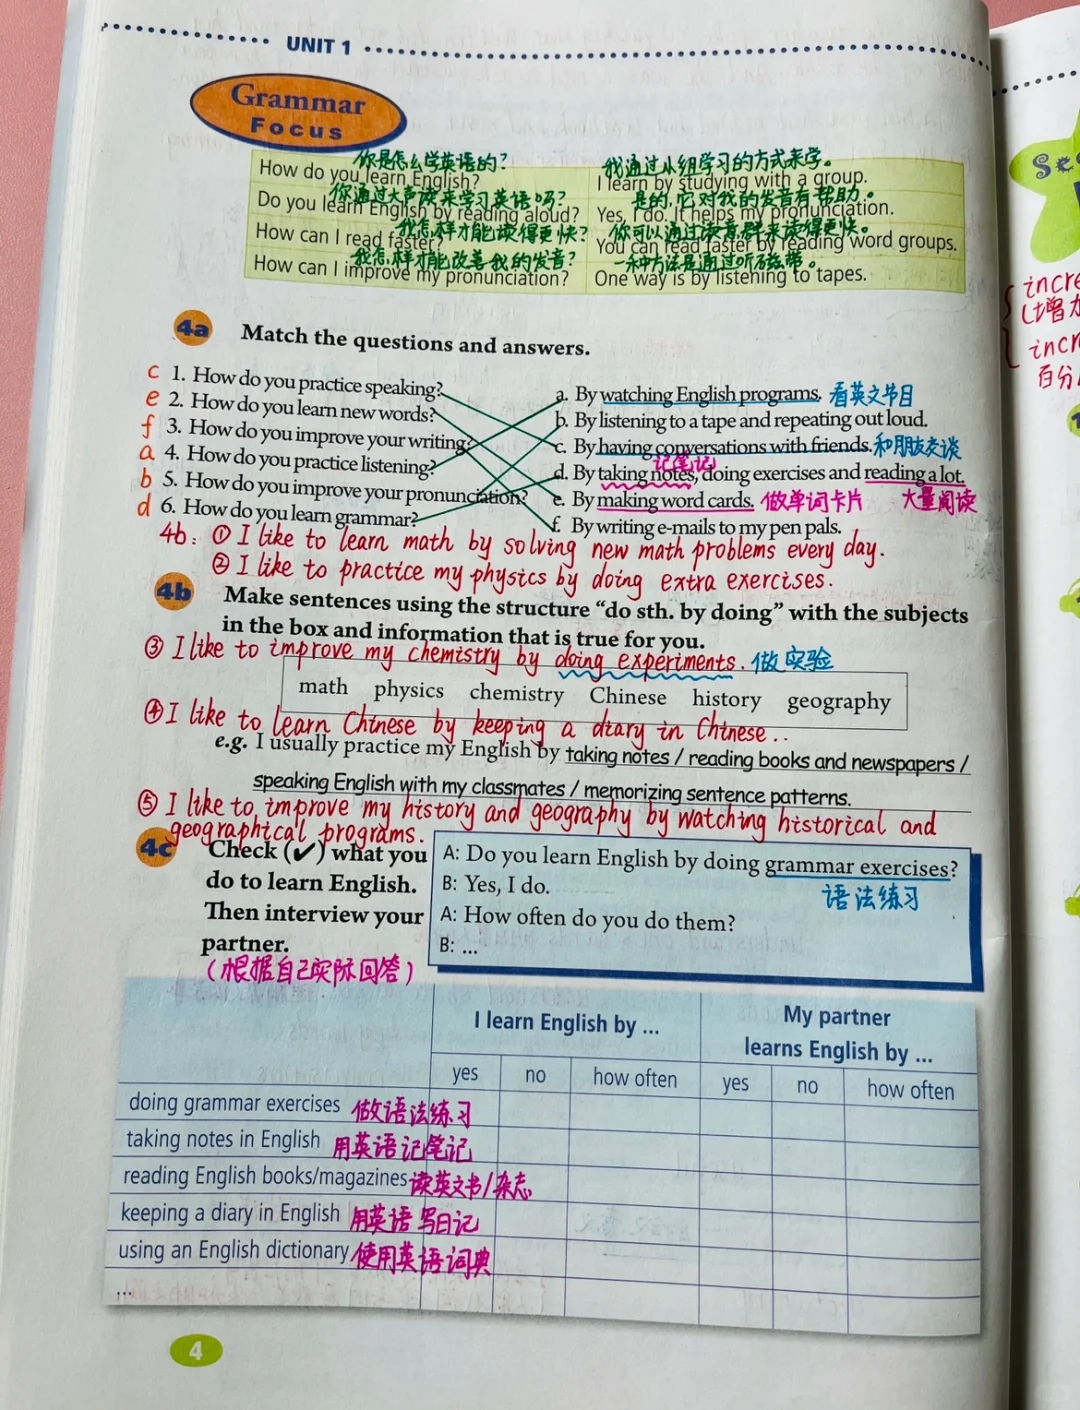 UNIT 1
Grammar
Focus
你是怎么学英语的?
我通过小组学习的方式来学。
How do you learn English?
I learn by studying with a group.
你通过大声读来学习英语吗?
是的,它对我的发音有帮助。
Do you learn English by reading aloud?
Yes, I do. It helps my pronunciation.
我怎样才能读得更快?
你可以通过读意群来读得更快。
How can I read faster?
You can read faster by reading word groups.
我怎样才能改善我的发音?
一种方法是通过听磁带。
How can I improve my pronunciation?
One way is by listening to tapes.
4a Match the questions and answers.
c 1. How do you practice speaking?
e 2. How do you learn new words?
f 3. How do you improve your writing?
a 4. How do you practice listening?
b 5. How do you improve your pronunciation?
d 6. How do you learn grammar?
a. By watching English programs. 看英文节目
b. By listening to a tape and repeating out loud.
c. By having conversations with friends. 和朋友交谈
记笔记
d. By taking notes, doing exercises and reading a lot.
e. By making word cards. 做单词卡片 大量阅读
f. By writing e-mails to my pen pals.
4b: ① I like to learn math by solving new math problems every day.
② I like to practice my physics by doing extra exercises.
4b Make sentences using the structure “do sth. by doing” with the subjects
in the box and information that is true for you.
③ I like to improve my chemistry by doing experiments. 做实验
math physics chemistry Chinese history geography
④ I like to learn Chinese by keeping a diary in Chinese..
e.g. I usually practice my English by taking notes / reading books and newspapers /
speaking English with my classmates / memorizing sentence patterns.
⑤ I like to improve my history and geography by watching historical and
geographical programs.
4c Check (✔) what you
do to learn English.
Then interview your
partner.
(根据自己实际回答)
A: Do you learn English by doing grammar exercises?
B: Yes, I do.
语法练习
A: How often do you do them?
B: ...
I learn English by ...
My partner
learns English by ...
yes no how often yes no how often
doing grammar exercises 做语法练习
taking notes in English 用英语记笔记
reading English books/magazines 读英文书/杂志
keeping a diary in English 用英语写日记
using an English dictionary 使用英语词典
...
4
incre
(增加
incr
百分